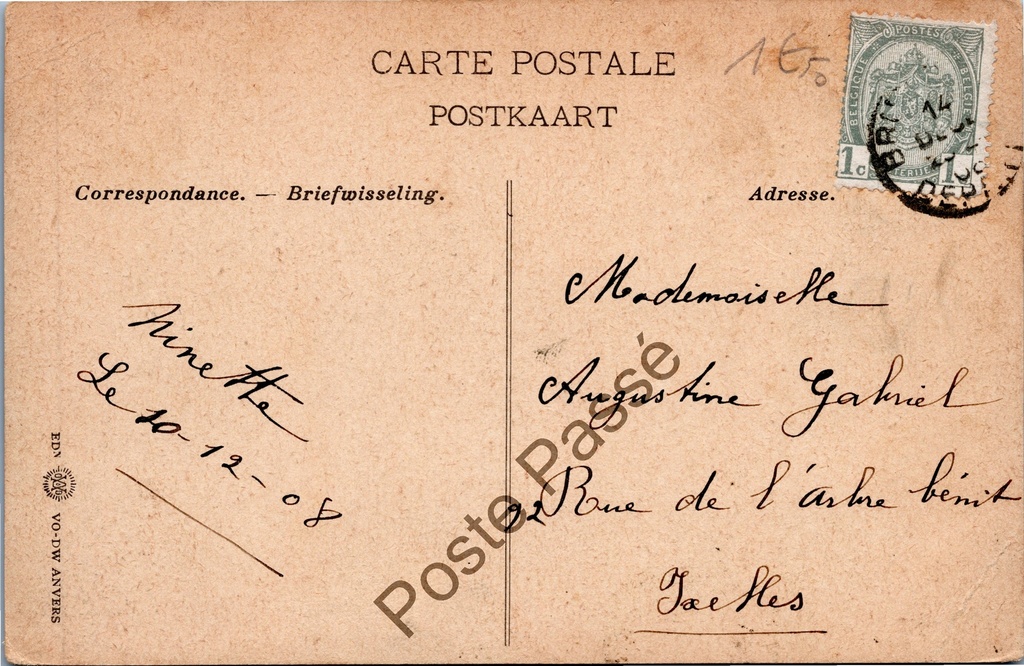 CARTE POSTALE
POSTKAART
1 € 50
POSTES
BELGIQUE
BELGIË
1c
1
14
DEC
08
DEP
Correspondance. — Briefwisseling.
Adresse.
Ninette
Le 10-12-08
Mademoiselle
Augustine Gabriel
92 Rue de l'arbre bénit
Ixelles
EDN VO-DW ANVERS
Poste Passé